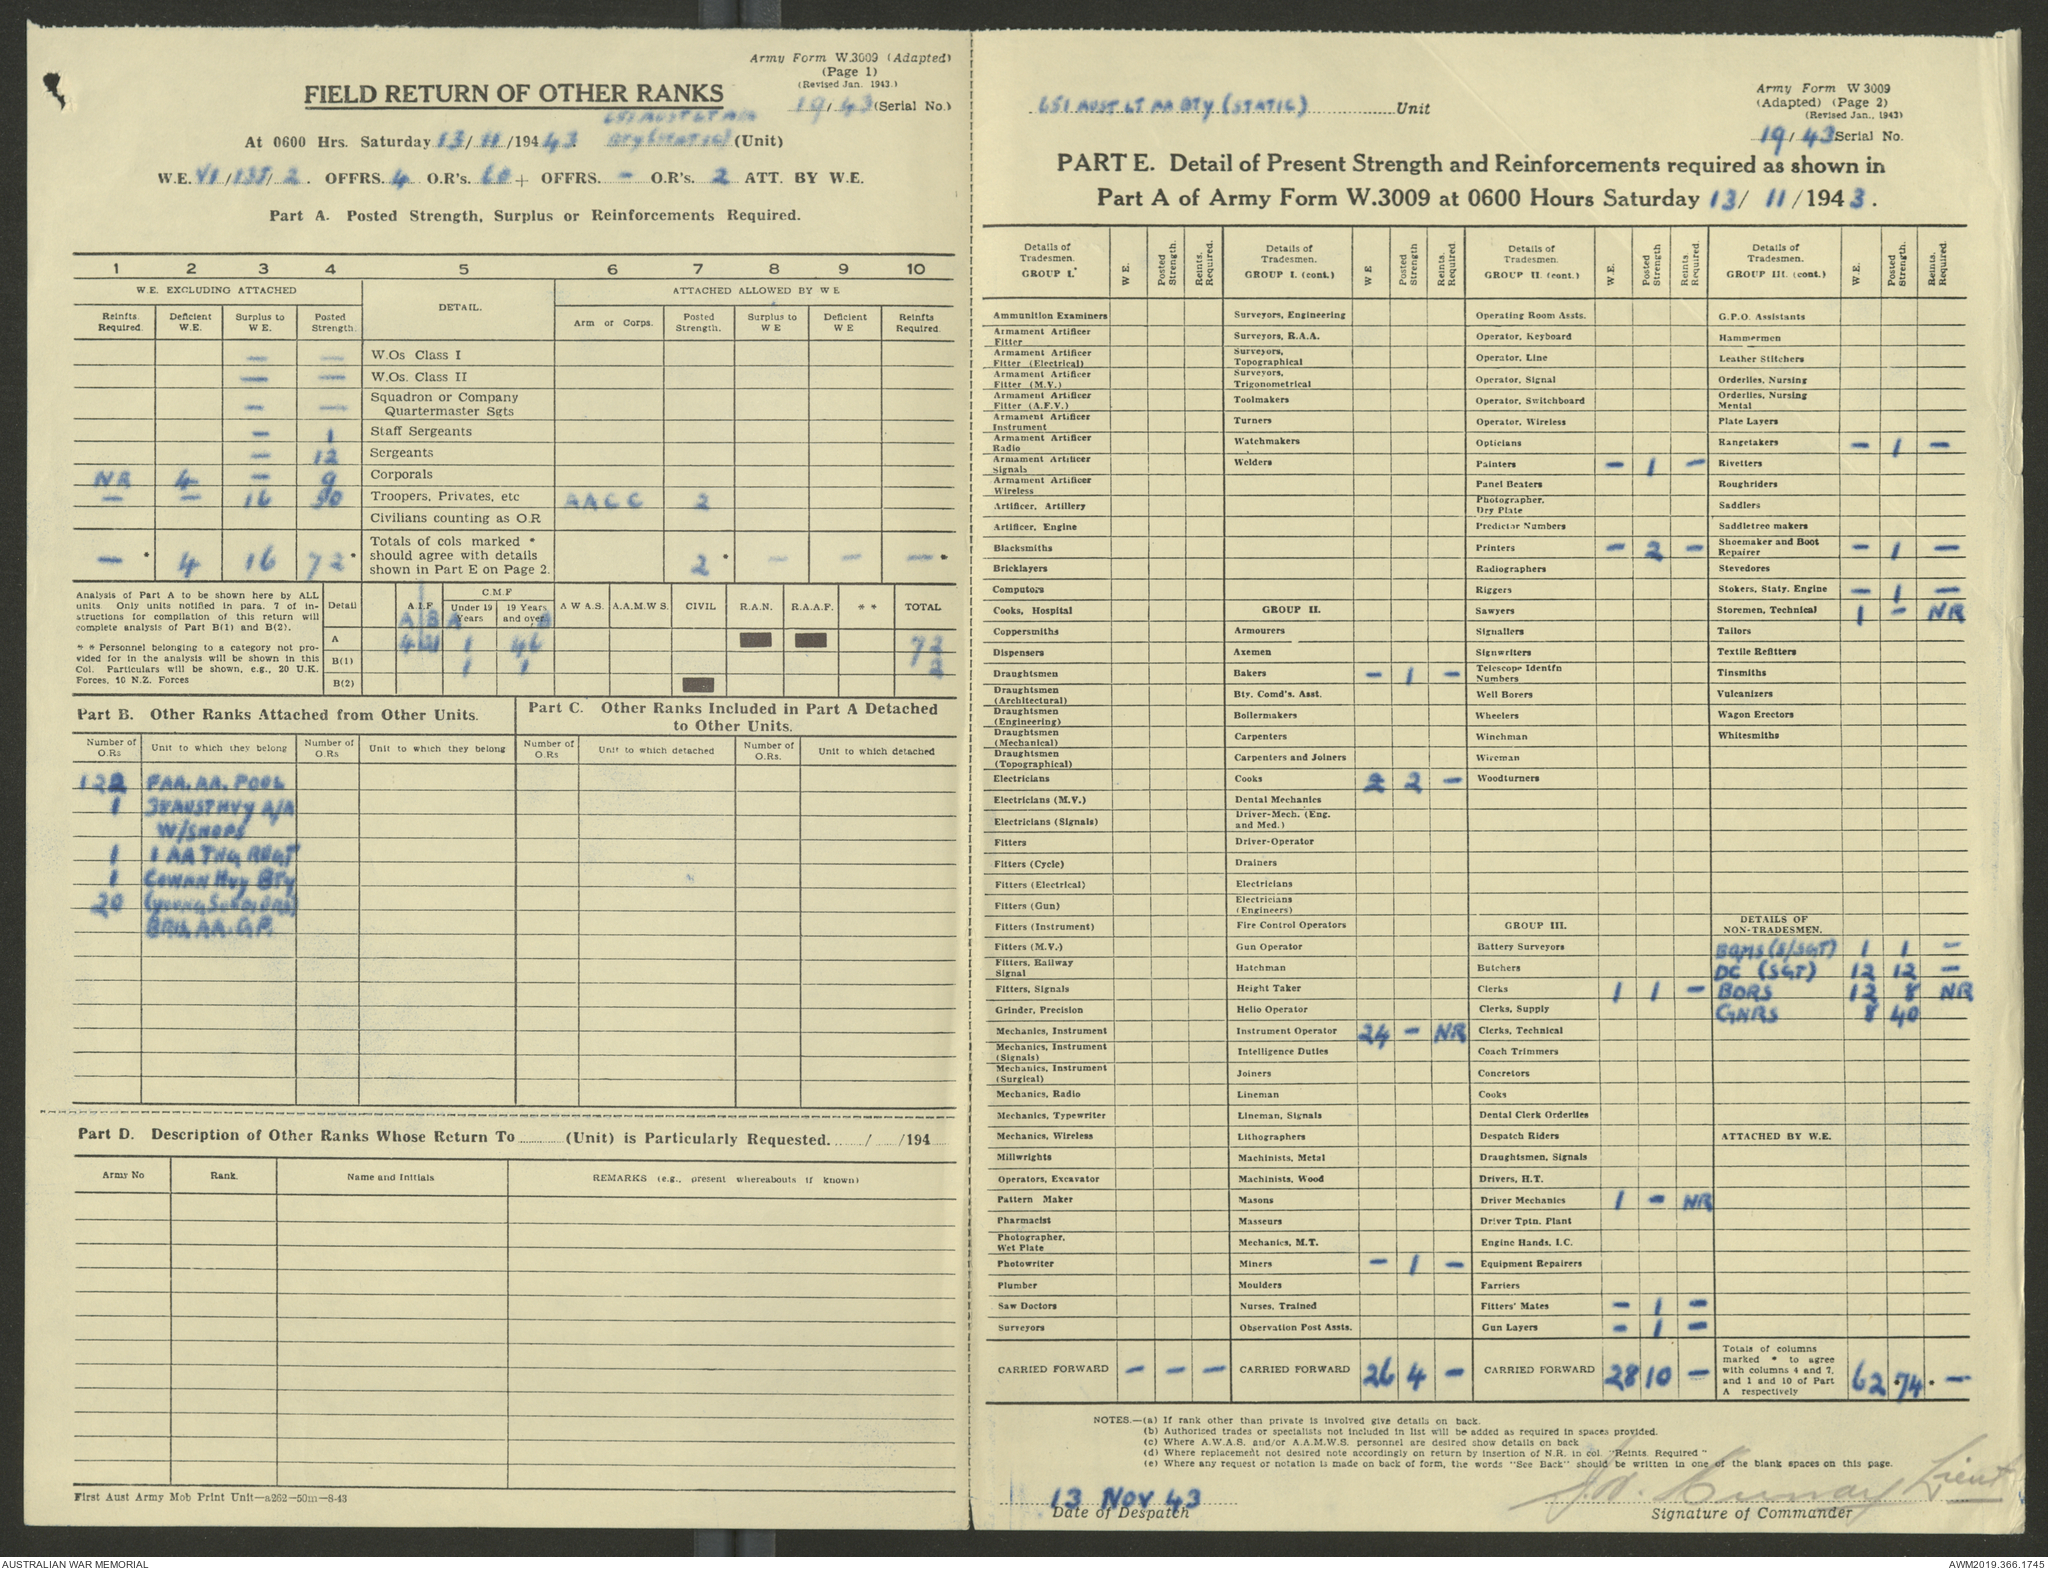 Army Form W.3009 (Adapted)
(Page 1)
(Revised Jan. 1943.)
FIELD RETURN OF OTHER RANKS
19/43 (Serial No.)
651 AUST LT AA
At 0600 Hrs. Saturday 13/11/1943. BTY (STATIC) (Unit)
W.E. VI/135/2. OFFRS. 4 O.R's. 60 + OFFRS. – O.R's. 2 ATT. BY W.E.
Part A. Posted Strength, Surplus or Reinforcements Required.
1 2 3 4 5 6 7 8 9 10
W.E. EXCLUDING ATTACHED DETAIL. ATTACHED ALLOWED BY W E
Reinfts. Required. Deficient W.E. Surplus to W E. Posted Strength. Arm or Corps. Posted Strength. Surplus to W E Deficient W E Reinfts Required.
– – W.Os Class I
– – W.Os. Class II
– – Squadron or Company Quartermaster Sgts
– 1 Staff Sergeants
– 12 Sergeants
NR 4 – 9 Corporals
– – 16 50 Troopers, Privates, etc AACC 2
Civilians counting as O.R
– * 4 16 72 * Totals of cols marked * should agree with details shown in Part E on Page 2. 2 * – – – *
Analysis of Part A to be shown here by ALL units. Only units notified in para. 7 of instructions for compilation of this return will complete analysis of Part B(1) and B(2).
* * Personnel belonging to a category not provided for in the analysis will be shown in this Col. Particulars will be shown, e.g., 20 U.K. Forces, 10 N.Z. Forces
Detail A.I.F C.M.F Under 19 Years 19 Years and over A W A.S. A.A.M.W S. CIVIL R.A.N. R.A.A.F. * * TOTAL
A B A
A 4 21 1 46 72
B(1) 1 1 2
B(2)
Part B. Other Ranks Attached from Other Units.
Part C. Other Ranks Included in Part A Detached to Other Units.
Number of O.Rs Unit to which they belong Number of O.Rs Unit to which they belong Number of O.Rs Unit to which detached Number of O.Rs. Unit to which detached
122 FAA. AA. POOL
1 AUST HVY A/A
W/SHOPS
1 1 AA TNG REGT
1 COWAN HVY BTY
20 (YOUNG SOLDIERS)
AA. GP.
Part D. Description of Other Ranks Whose Return To (Unit) is Particularly Requested. / /194
Army No Rank. Name and Initials REMARKS (e.g., present whereabouts if known)
First Aust Army Mob Print Unit—a262—50m—8-43
Army Form W 3009
(Adapted) (Page 2)
(Revised Jan., 1943)
651 AUST LT AA BTY (STATIC) Unit
19/43 Serial No.
PART E. Detail of Present Strength and Reinforcements required as shown in
Part A of Army Form W.3009 at 0600 Hours Saturday 13/11/1943.
Details of Tradesmen. GROUP I. W.E. Posted Strength. Reints. Required.
Ammunition Examiners
Armament Artificer Fitter
Armament Artificer Fitter (Electrical)
Armament Artificer Fitter (M.V.)
Armament Artificer Fitter (A.F.V.)
Armament Artificer Instrument
Armament Artificer Radio
Armament Artificer Signals
Armament Artificer Wireless
Artificer, Artillery
Artificer, Engine
Blacksmiths
Bricklayers
Computors
Cooks, Hospital
Coppersmiths
Dispensers
Draughtsmen
Draughtsmen (Architectural)
Draughtsmen (Engineering)
Draughtsmen (Mechanical)
Draughtsmen (Topographical)
Electricians
Electricians (M.V.)
Electricians (Signals)
Fitters
Fitters (Cycle)
Fitters (Electrical)
Fitters (Gun)
Fitters (Instrument)
Fitters (M.V.)
Fitters, Railway Signal
Fitters, Signals
Grinder, Precision
Mechanics, Instrument
Mechanics, Instrument (Signals)
Mechanics, Instrument (Surgical)
Mechanics, Radio
Mechanics, Typewriter
Mechanics, Wireless
Millwrights
Operators, Excavator
Pattern Maker
Pharmacist
Photographer, Wet Plate
Photowriter
Plumber
Saw Doctors
Surveyors
CARRIED FORWARD – – –
Details of Tradesmen. GROUP I. (cont.) W E Posted Strength Reints. Required.
Surveyors, Engineering
Surveyors, R.A.A.
Surveyors, Topographical
Surveyors, Trigonometrical
Toolmakers
Turners
Watchmakers
Welders
GROUP II.
Armourers
Axemen
Bakers – 1 –
Bty. Comd's. Asst.
Boilermakers
Carpenters
Carpenters and Joiners
Cooks 2 2 –
Dental Mechanics
Driver-Mech. (Eng. and Med.)
Driver-Operator
Drainers
Electricians
Electricians (Engineers)
Fire Control Operators
Gun Operator
Hatchman
Height Taker
Helio Operator
Instrument Operator 24 – NR
Intelligence Duties
Joiners
Lineman
Lineman, Signals
Lithographers
Machinists, Metal
Machinists, Wood
Masons
Masseurs
Mechanics, M.T.
Miners – 1 –
Moulders
Nurses, Trained
Observation Post Assts.
CARRIED FORWARD 26 4 –
Details of Tradesmen. GROUP II. (cont.) W.E. Posted Strength Reints. Required.
Operating Room Assts.
Operator, Keyboard
Operator, Line
Operator, Signal
Operator, Switchboard
Operator, Wireless
Opticians
Painters – 1 –
Panel Beaters
Photographer, Dry Plate
Predictor Numbers
Printers – 2 –
Radiographers
Riggers
Sawyers
Signallers
Signwriters
Telescope Identfn Numbers
Well Borers
Wheelers
Winchman
Wireman
Woodturners
GROUP III.
Battery Surveyors
Butchers
Clerks 1 1 –
Clerks, Supply
Clerks, Technical
Coach Trimmers
Concretors
Cooks
Dental Clerk Orderlies
Despatch Riders
Draughtsmen, Signals
Drivers, H.T.
Driver Mechanics 1 – NR
Driver Tptn. Plant
Engine Hands, I.C.
Equipment Repairers
Farriers
Fitters' Mates – 1 –
Gun Layers – 1 –
CARRIED FORWARD 28 10 –
Details of Tradesmen. GROUP III. (cont.) W.E. Posted Strength. Reints. Required.
G.P.O. Assistants
Hammermen
Leather Stitchers
Orderlies, Nursing
Orderlies, Nursing Mental
Plate Layers
Rangetakers – 1 –
Rivetters
Roughriders
Saddlers
Saddletree makers
Shoemaker and Boot Repairer – 1 –
Stevedores
Stokers, Staty. Engine – 1 –
Storemen, Technical 1 – NR
Tailors
Textile Refitters
Tinsmiths
Vulcanizers
Wagon Erectors
Whitesmiths
DETAILS OF NON-TRADESMEN.
BQMS (S/SGT) 1 1 –
DC (SGT) 12 12 –
BDRS 12 8 NR
GNRS 8 40
ATTACHED BY W.E.
Totals of columns marked * to agree with columns 4 and 7, and 1 and 10 of Part A respectively 62 *74 * –
NOTES.—(a) If rank other than private is involved give details on back.
(b) Authorised trades or specialists not included in list will be added as required in spaces provided.
(c) Where A.W.A.S. and/or A.A.M.W.S. personnel are desired show details on back
(d) Where replacement not desired note accordingly on return by insertion of N.R. in col. "Reints. Required"
(e) Where any request or notation is made on back of form, the words "See Back" should be written in one of the blank spaces on this page.
13 NOV 43
Date of Despatch
Lieut
Signature of Commander
AUSTRALIAN WAR MEMORIAL
AWM2019.366.1745